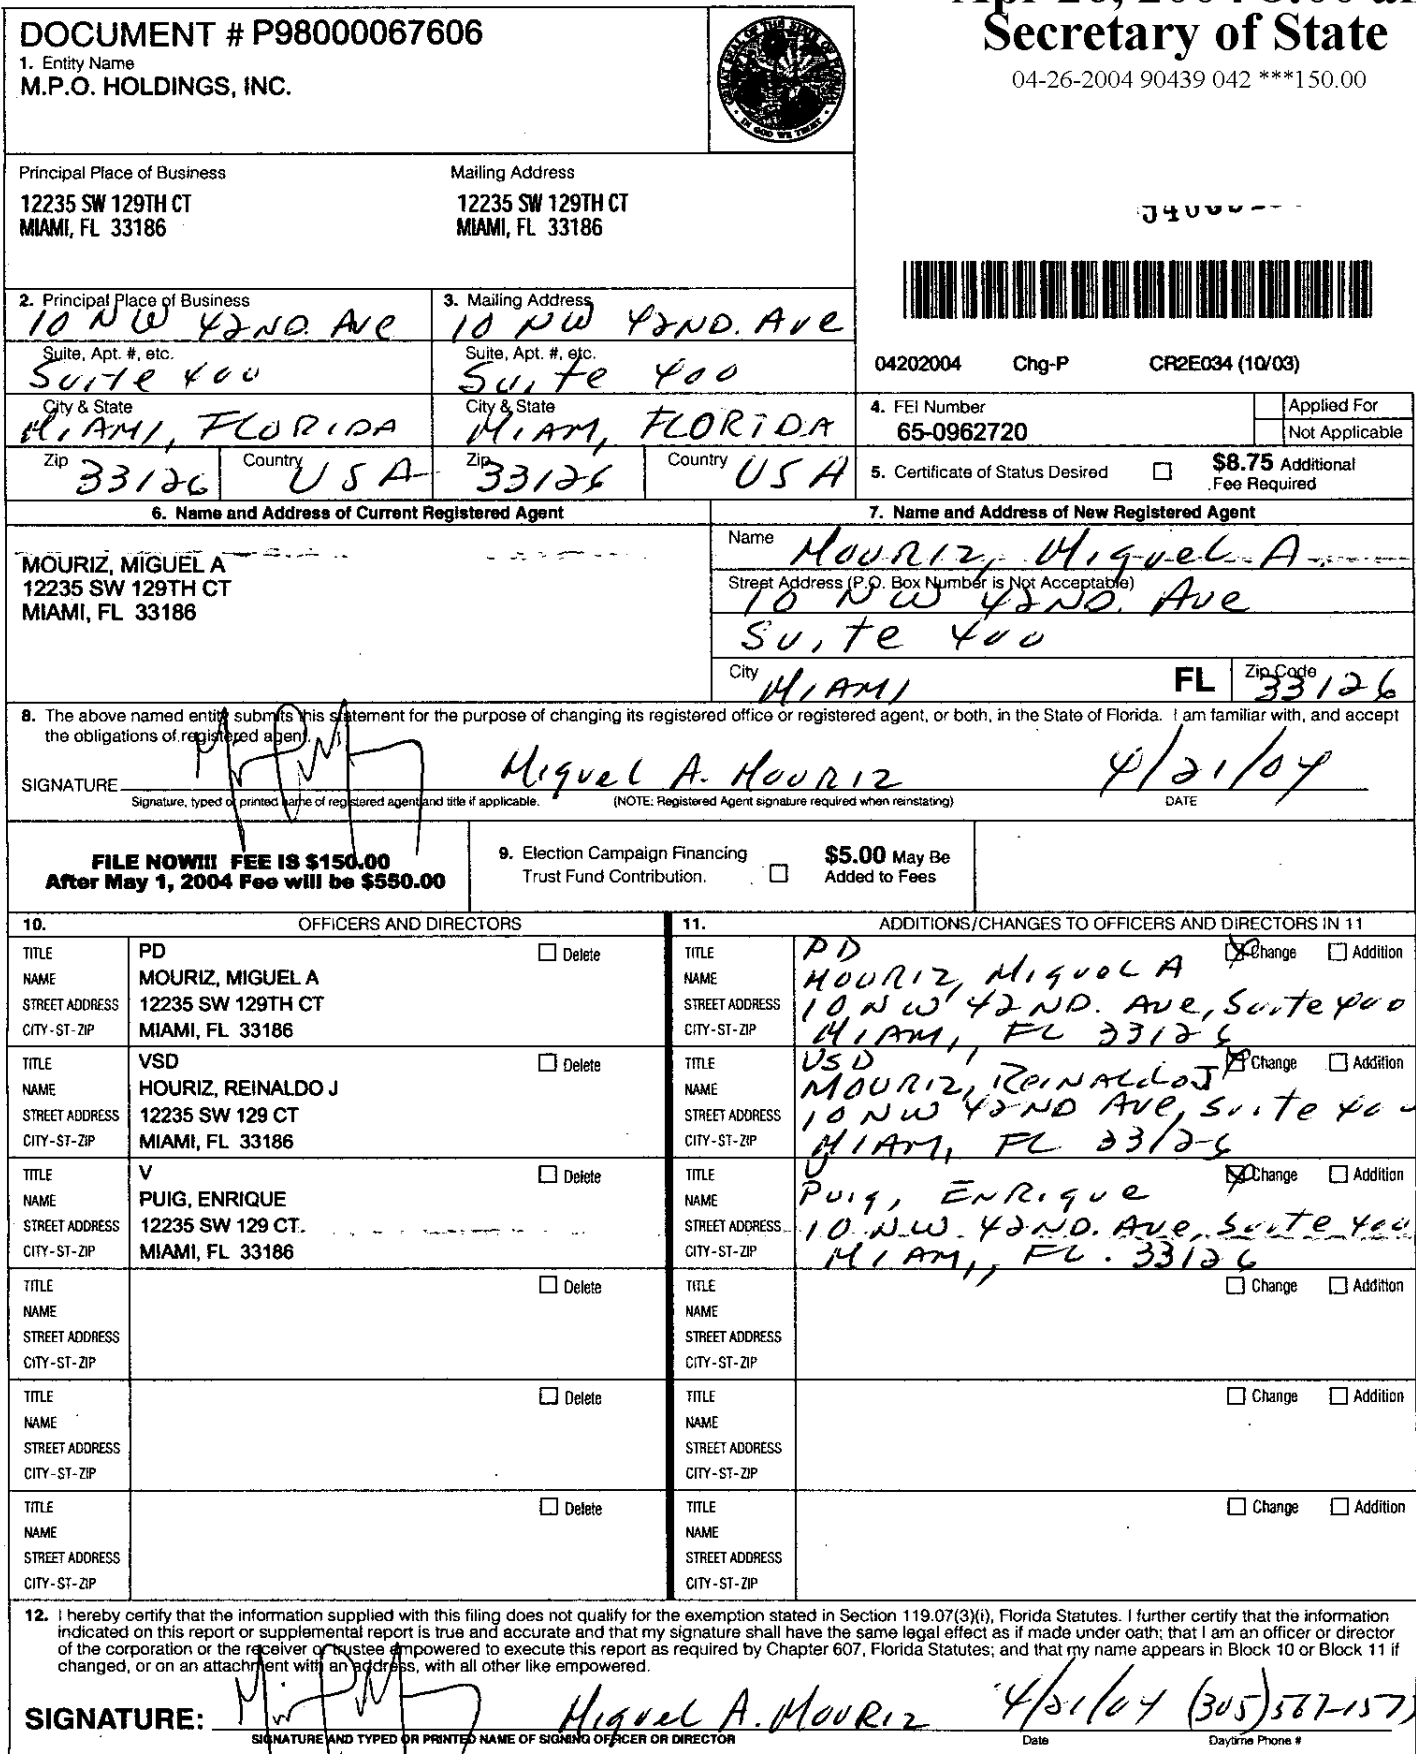 DOCUMENT # P98000067606
1. Entity Name
M.P.O. HOLDINGS, INC.
Secretary of State
04-26-2004 90439 042 ***150.00
Principal Place of Business
12235 SW 129TH CT
MIAMI, FL 33186
Mailing Address
12235 SW 129TH CT
MIAMI, FL 33186
2. Principal Place of Business
10 NW 42ND. Ave
Suite, Apt. #, etc.
Suite 400
City & State
MIAMI, FLORIDA
Zip 33126 Country USA
3. Mailing Address
10 NW 42ND. Ave
Suite, Apt. #, etc.
Suite 400
City & State
MIAMI, FLORIDA
Zip 33126 Country USA
04202004 Chg-P CR2E034 (10/03)
4. FEI Number
65-0962720
Applied For
Not Applicable
5. Certificate of Status Desired
$8.75 Additional
Fee Required
6. Name and Address of Current Registered Agent
MOURIZ, MIGUEL A
12235 SW 129TH CT
MIAMI, FL 33186
7. Name and Address of New Registered Agent
Name MOURIZ, Miguel A
Street Address (P.O. Box Number is Not Acceptable)
10 NW 42ND. Ave
Suite 400
City MIAMI FL Zip Code 33126
8. The above named entity submits this statement for the purpose of changing its registered office or registered agent, or both, in the State of Florida. I am familiar with, and accept
the obligations of registered agent.
SIGNATURE Miguel A. MOURIZ 4/21/04
Signature, typed or printed name of registered agent and title if applicable. (NOTE: Registered Agent signature required when reinstating) DATE
FILE NOW!!! FEE IS $150.00
After May 1, 2004 Fee will be $550.00
9. Election Campaign Financing
Trust Fund Contribution.
$5.00 May Be
Added to Fees
10. OFFICERS AND DIRECTORS
TITLE PD Delete
NAME MOURIZ, MIGUEL A
STREET ADDRESS 12235 SW 129TH CT
CITY-ST-ZIP MIAMI, FL 33186
TITLE VSD Delete
NAME HOURIZ, REINALDO J
STREET ADDRESS 12235 SW 129 CT
CITY-ST-ZIP MIAMI, FL 33186
TITLE V Delete
NAME PUIG, ENRIQUE
STREET ADDRESS 12235 SW 129 CT.
CITY-ST-ZIP MIAMI, FL 33186
TITLE Delete
NAME
STREET ADDRESS
CITY-ST-ZIP
TITLE Delete
NAME
STREET ADDRESS
CITY-ST-ZIP
TITLE Delete
NAME
STREET ADDRESS
CITY-ST-ZIP
11. ADDITIONS/CHANGES TO OFFICERS AND DIRECTORS IN 11
TITLE PD Change Addition
NAME MOURIZ, MIGUEL A
STREET ADDRESS 10 NW 42ND. Ave, Suite 400
CITY-ST-ZIP MIAMI, FL 33126
TITLE VSD Change Addition
NAME MOURIZ, REINALDO J
STREET ADDRESS 10 NW 42ND Ave, Suite 400
CITY-ST-ZIP MIAMI, FL 33126
TITLE V Change Addition
NAME Puig, ENRIQUE
STREET ADDRESS 10 N.W. 42ND. Ave, Suite 400
CITY-ST-ZIP MIAMI, FL. 33126
TITLE Change Addition
NAME
STREET ADDRESS
CITY-ST-ZIP
TITLE Change Addition
NAME
STREET ADDRESS
CITY-ST-ZIP
TITLE Change Addition
NAME
STREET ADDRESS
CITY-ST-ZIP
12. I hereby certify that the information supplied with this filing does not qualify for the exemption stated in Section 119.07(3)(i), Florida Statutes. I further certify that the information
indicated on this report or supplemental report is true and accurate and that my signature shall have the same legal effect as if made under oath; that I am an officer or director
of the corporation or the receiver or trustee empowered to execute this report as required by Chapter 607, Florida Statutes; and that my name appears in Block 10 or Block 11 if
changed, or on an attachment with an address, with all other like empowered.
SIGNATURE: Miguel A. MOURIZ 4/21/04 (305)567-157
SIGNATURE AND TYPED OR PRINTED NAME OF SIGNING OFFICER OR DIRECTOR Date Daytime Phone #